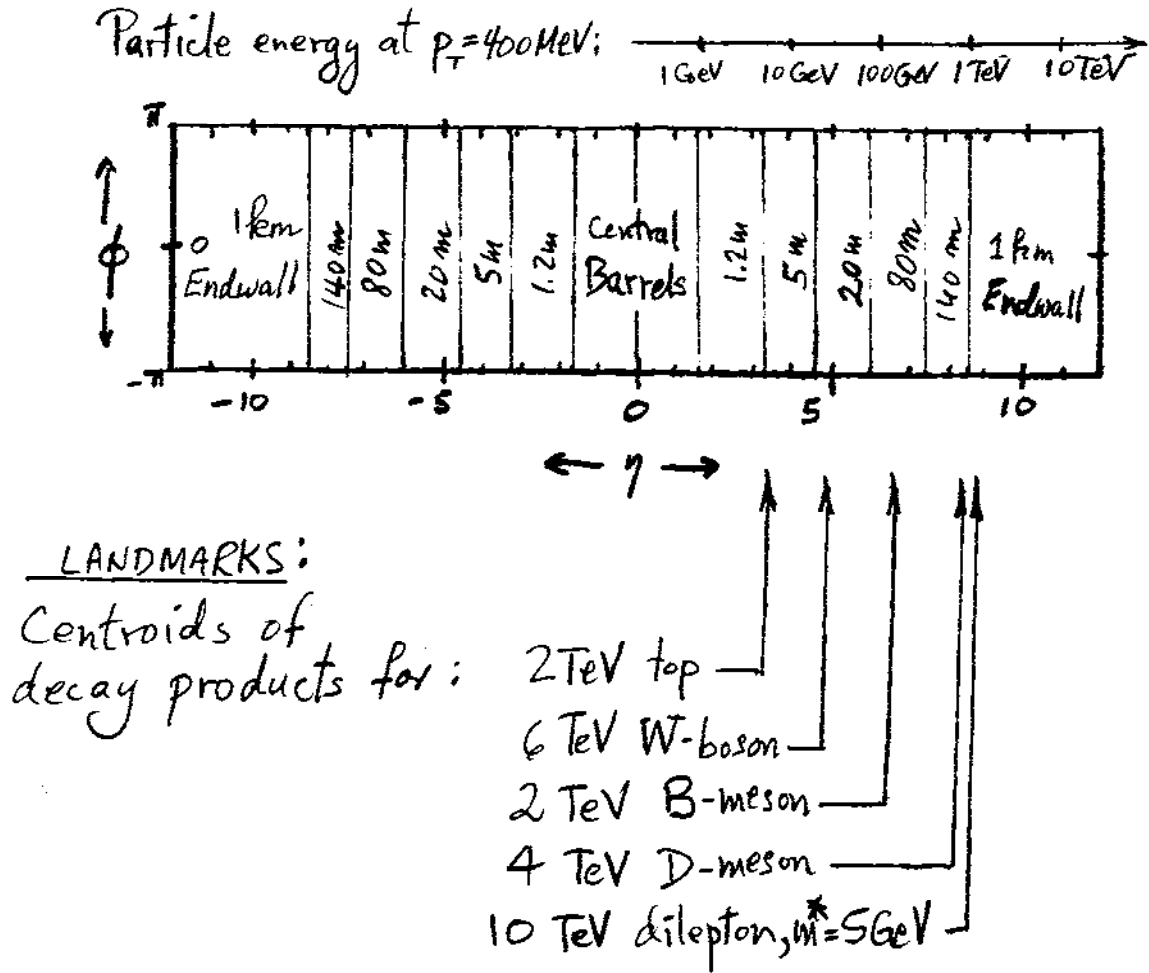 Particle energy at p_T=400 MeV:
1 GeV 10 GeV 100 GeV 1 TeV 10 TeV
π
φ
0
-π
1 km Endwall
140 m
80 m
20 m
5 m
1.2 m
Central Barrels
1.2 m
5 m
20 m
80 m
140 m
1 km Endwall
-10 -5 0 5 10
← η →
LANDMARKS:
Centroids of
decay products for:
2 TeV top
6 TeV W-boson
2 TeV B-meson
4 TeV D-meson
10 TeV dilepton, m*=5 GeV